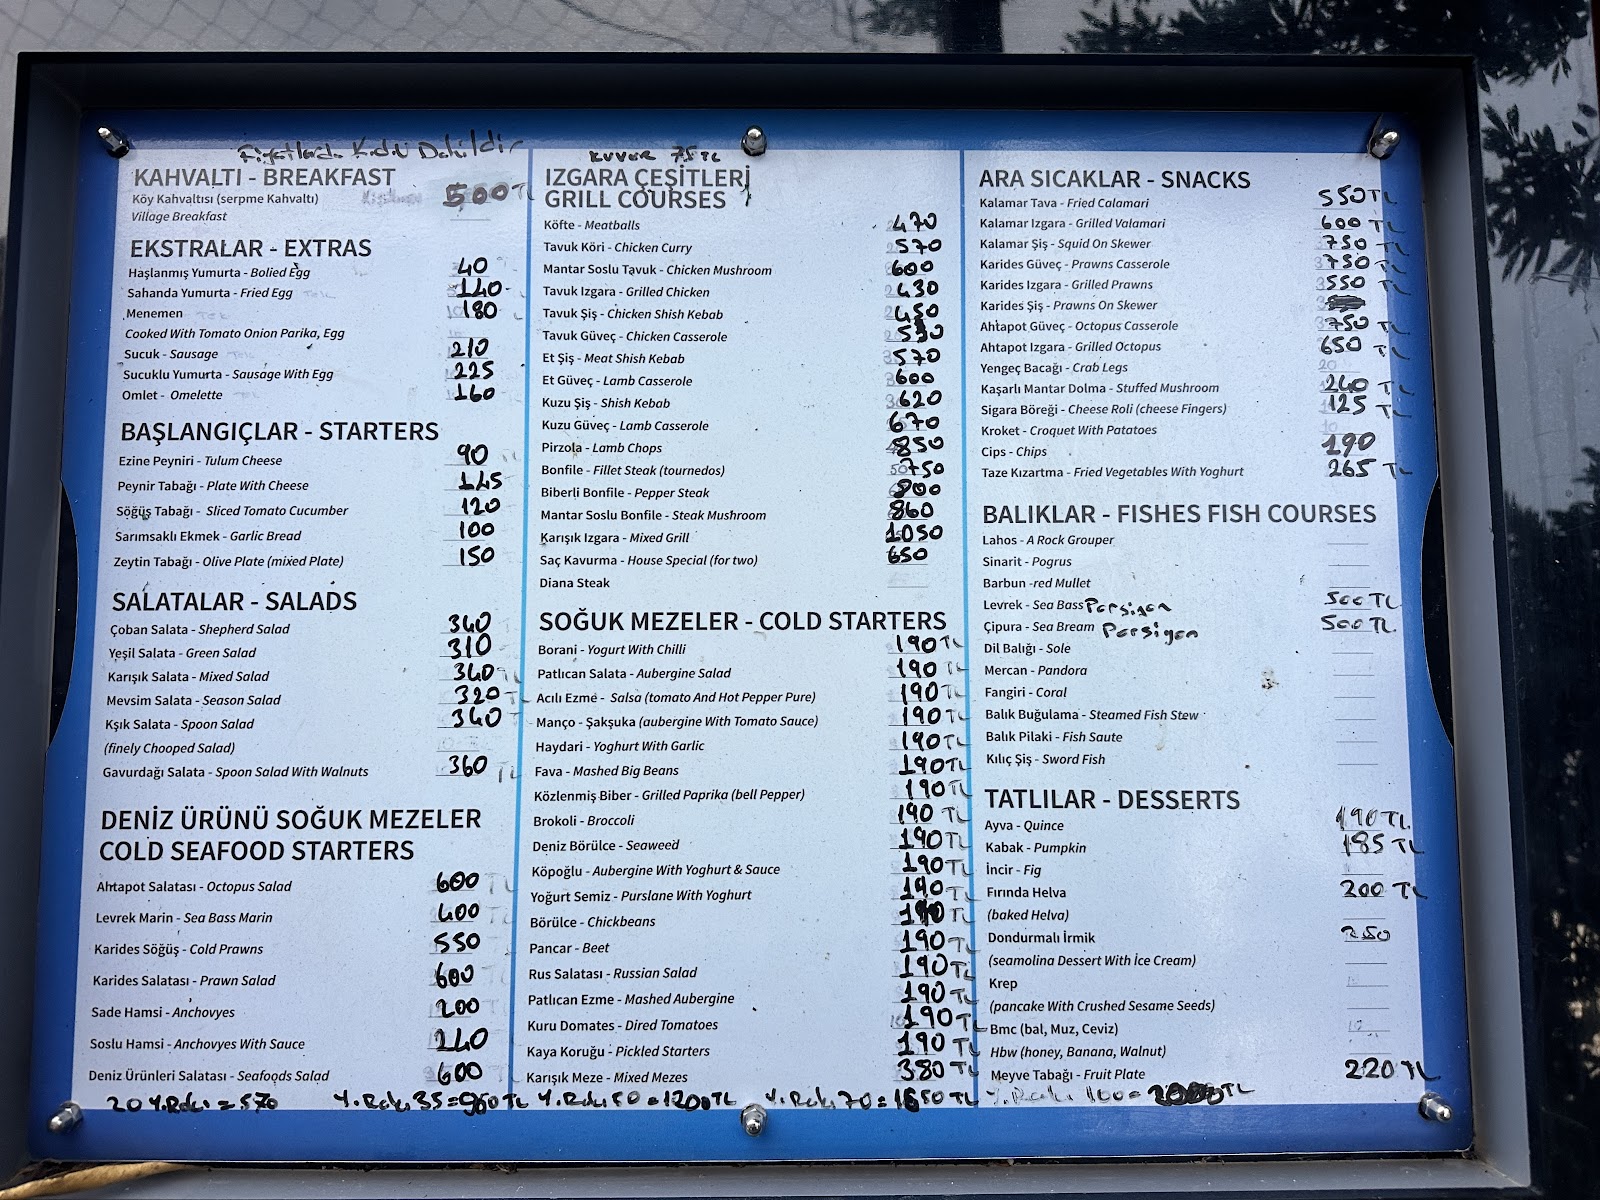 Fiyatlara Kdv Dahildir
KAHVALTI - BREAKFAST
Köy Kahvaltısı (serpme Kahvaltı) 500 TL
Village Breakfast
EKSTRALAR - EXTRAS
Haşlanmış Yumurta - Bolied Egg 40
Sahanda Yumurta - Fried Egg 140
Menemen 180
Cooked With Tomato Onion Parika, Egg
Sucuk - Sausage 210
Sucuklu Yumurta - Sausage With Egg 225
Omlet - Omelette 160
BAŞLANGIÇLAR - STARTERS
Ezine Peyniri - Tulum Cheese 90
Peynir Tabağı - Plate With Cheese 145
Söğüş Tabağı - Sliced Tomato Cucumber 120
Sarımsaklı Ekmek - Garlic Bread 100
Zeytin Tabağı - Olive Plate (mixed Plate) 150
SALATALAR - SALADS
Çoban Salata - Shepherd Salad 340
Yeşil Salata - Green Salad 310
Karışık Salata - Mixed Salad 340
Mevsim Salata - Season Salad 320
Kşik Salata - Spoon Salad 340
(finely Chooped Salad)
Gavurdağı Salata - Spoon Salad With Walnuts 360
DENİZ ÜRÜNÜ SOĞUK MEZELER
COLD SEAFOOD STARTERS
Ahtapot Salatası - Octopus Salad 600
Levrek Marin - Sea Bass Marin 400
Karides Söğüş - Cold Prawns 550
Karides Salatası - Prawn Salad 600
Sade Hamsi - Anchovyes 200
Soslu Hamsi - Anchovyes With Sauce 240
Deniz Ürünleri Salatası - Seafoods Salad 600
KUVER 75 TL
IZGARA ÇEŞİTLERİ
GRILL COURSES
Köfte - Meatballs 470
Tavuk Köri - Chicken Curry 570
Mantar Soslu Tavuk - Chicken Mushroom 600
Tavuk Izgara - Grilled Chicken 430
Tavuk Şiş - Chicken Shish Kebab 450
Tavuk Güveç - Chicken Casserole
Et Şiş - Meat Shish Kebab 570
Et Güveç - Lamb Casserole 600
Kuzu Şiş - Shish Kebab 620
Kuzu Güveç - Lamb Casserole 670
Pirzola - Lamb Chops 850
Bonfile - Fillet Steak (tournedos) 750
Biberli Bonfile - Pepper Steak 800
Mantar Soslu Bonfile - Steak Mushroom 860
Karışık Izgara - Mixed Grill 1050
Saç Kavurma - House Special (for two) 650
Diana Steak
SOĞUK MEZELER - COLD STARTERS
Borani - Yogurt With Chilli 190 TL
Patlıcan Salata - Aubergine Salad 190 TL
Acılı Ezme - Salsa (tomato And Hot Pepper Pure) 190 TL
Manço - Şakşuka (aubergine With Tomato Sauce) 190 TL
Haydari - Yoghurt With Garlic 190 TL
Fava - Mashed Big Beans 190 TL
Közlenmiş Biber - Grilled Paprika (bell Pepper) 190 TL
Brokoli - Broccoli 190 TL
Deniz Börülce - Seaweed 190 TL
Köpoğlu - Aubergine With Yoghurt & Sauce 190 TL
Yoğurt Semiz - Purslane With Yoghurt 190 TL
Börülce - Chickbeans 190 TL
Pancar - Beet 190 TL
Rus Salatası - Russian Salad 190 TL
Patlıcan Ezme - Mashed Aubergine 190 TL
Kuru Domates - Dired Tomatoes 190 TL
Kaya Koruğu - Pickled Starters 190 TL
Karışık Meze - Mixed Mezes 380 TL
ARA SICAKLAR - SNACKS
Kalamar Tava - Fried Calamari 550 TL
Kalamar Izgara - Grilled Valamari 600 TL
Kalamar Şiş - Squid On Skewer 750 TL
Karides Güveç - Prawns Casserole 750 TL
Karides Izgara - Grilled Prawns 550 TL
Karides Şiş - Prawns On Skewer
Ahtapot Güveç - Octopus Casserole 750 TL
Ahtapot Izgara - Grilled Octopus 650 TL
Yengeç Bacağı - Crab Legs
Kaşarlı Mantar Dolma - Stuffed Mushroom 240 TL
Sigara Böreği - Cheese Roli (cheese Fingers) 125 TL
Kroket - Croquet With Patatoes
Cips - Chips 190
Taze Kızartma - Fried Vegetables With Yoghurt 265 TL
BALIKLAR - FISHES FISH COURSES
Lahos - A Rock Grouper
Sinarit - Pogrus
Barbun -red Mullet
Levrek - Sea Bass Porsiyon 500 TL
Çipura - Sea Bream Porsiyon 500 TL
Dil Balığı - Sole
Mercan - Pandora
Fangiri - Coral
Balık Buğulama - Steamed Fish Stew
Balık Pilaki - Fish Saute
Kılıç Şiş - Sword Fish
TATLILAR - DESSERTS
Ayva - Quince 190 TL
Kabak - Pumpkin 185 TL
İncir - Fig
Fırında Helva 200 TL
(baked Helva)
Dondurmalı İrmik 250
(seamolina Dessert With İce Cream)
Krep
(pancake With Crushed Sesame Seeds)
Bmc (bal, Muz, Ceviz)
Hbw (honey, Banana, Walnut)
Meyve Tabağı - Fruit Plate 220 TL
20 Y.Rakı = 570 Y.Rakı 35 = 960 TL Y.Rakı 50 = 1200 TL Y.Rakı 70 = 1650 TL Y.Rakı 100 = 2000 TL